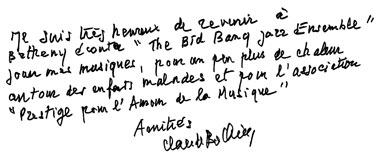 Je suis très heureux de revenir à
Betheny écouter "The Big Bang Jazz Ensemble"
jouer mes musiques, pour un peu plus de chaleur
autour des enfants malades et pour l'association
"Prestige pour l'Amour de la Musique"
Amitiés
Claude Bolling